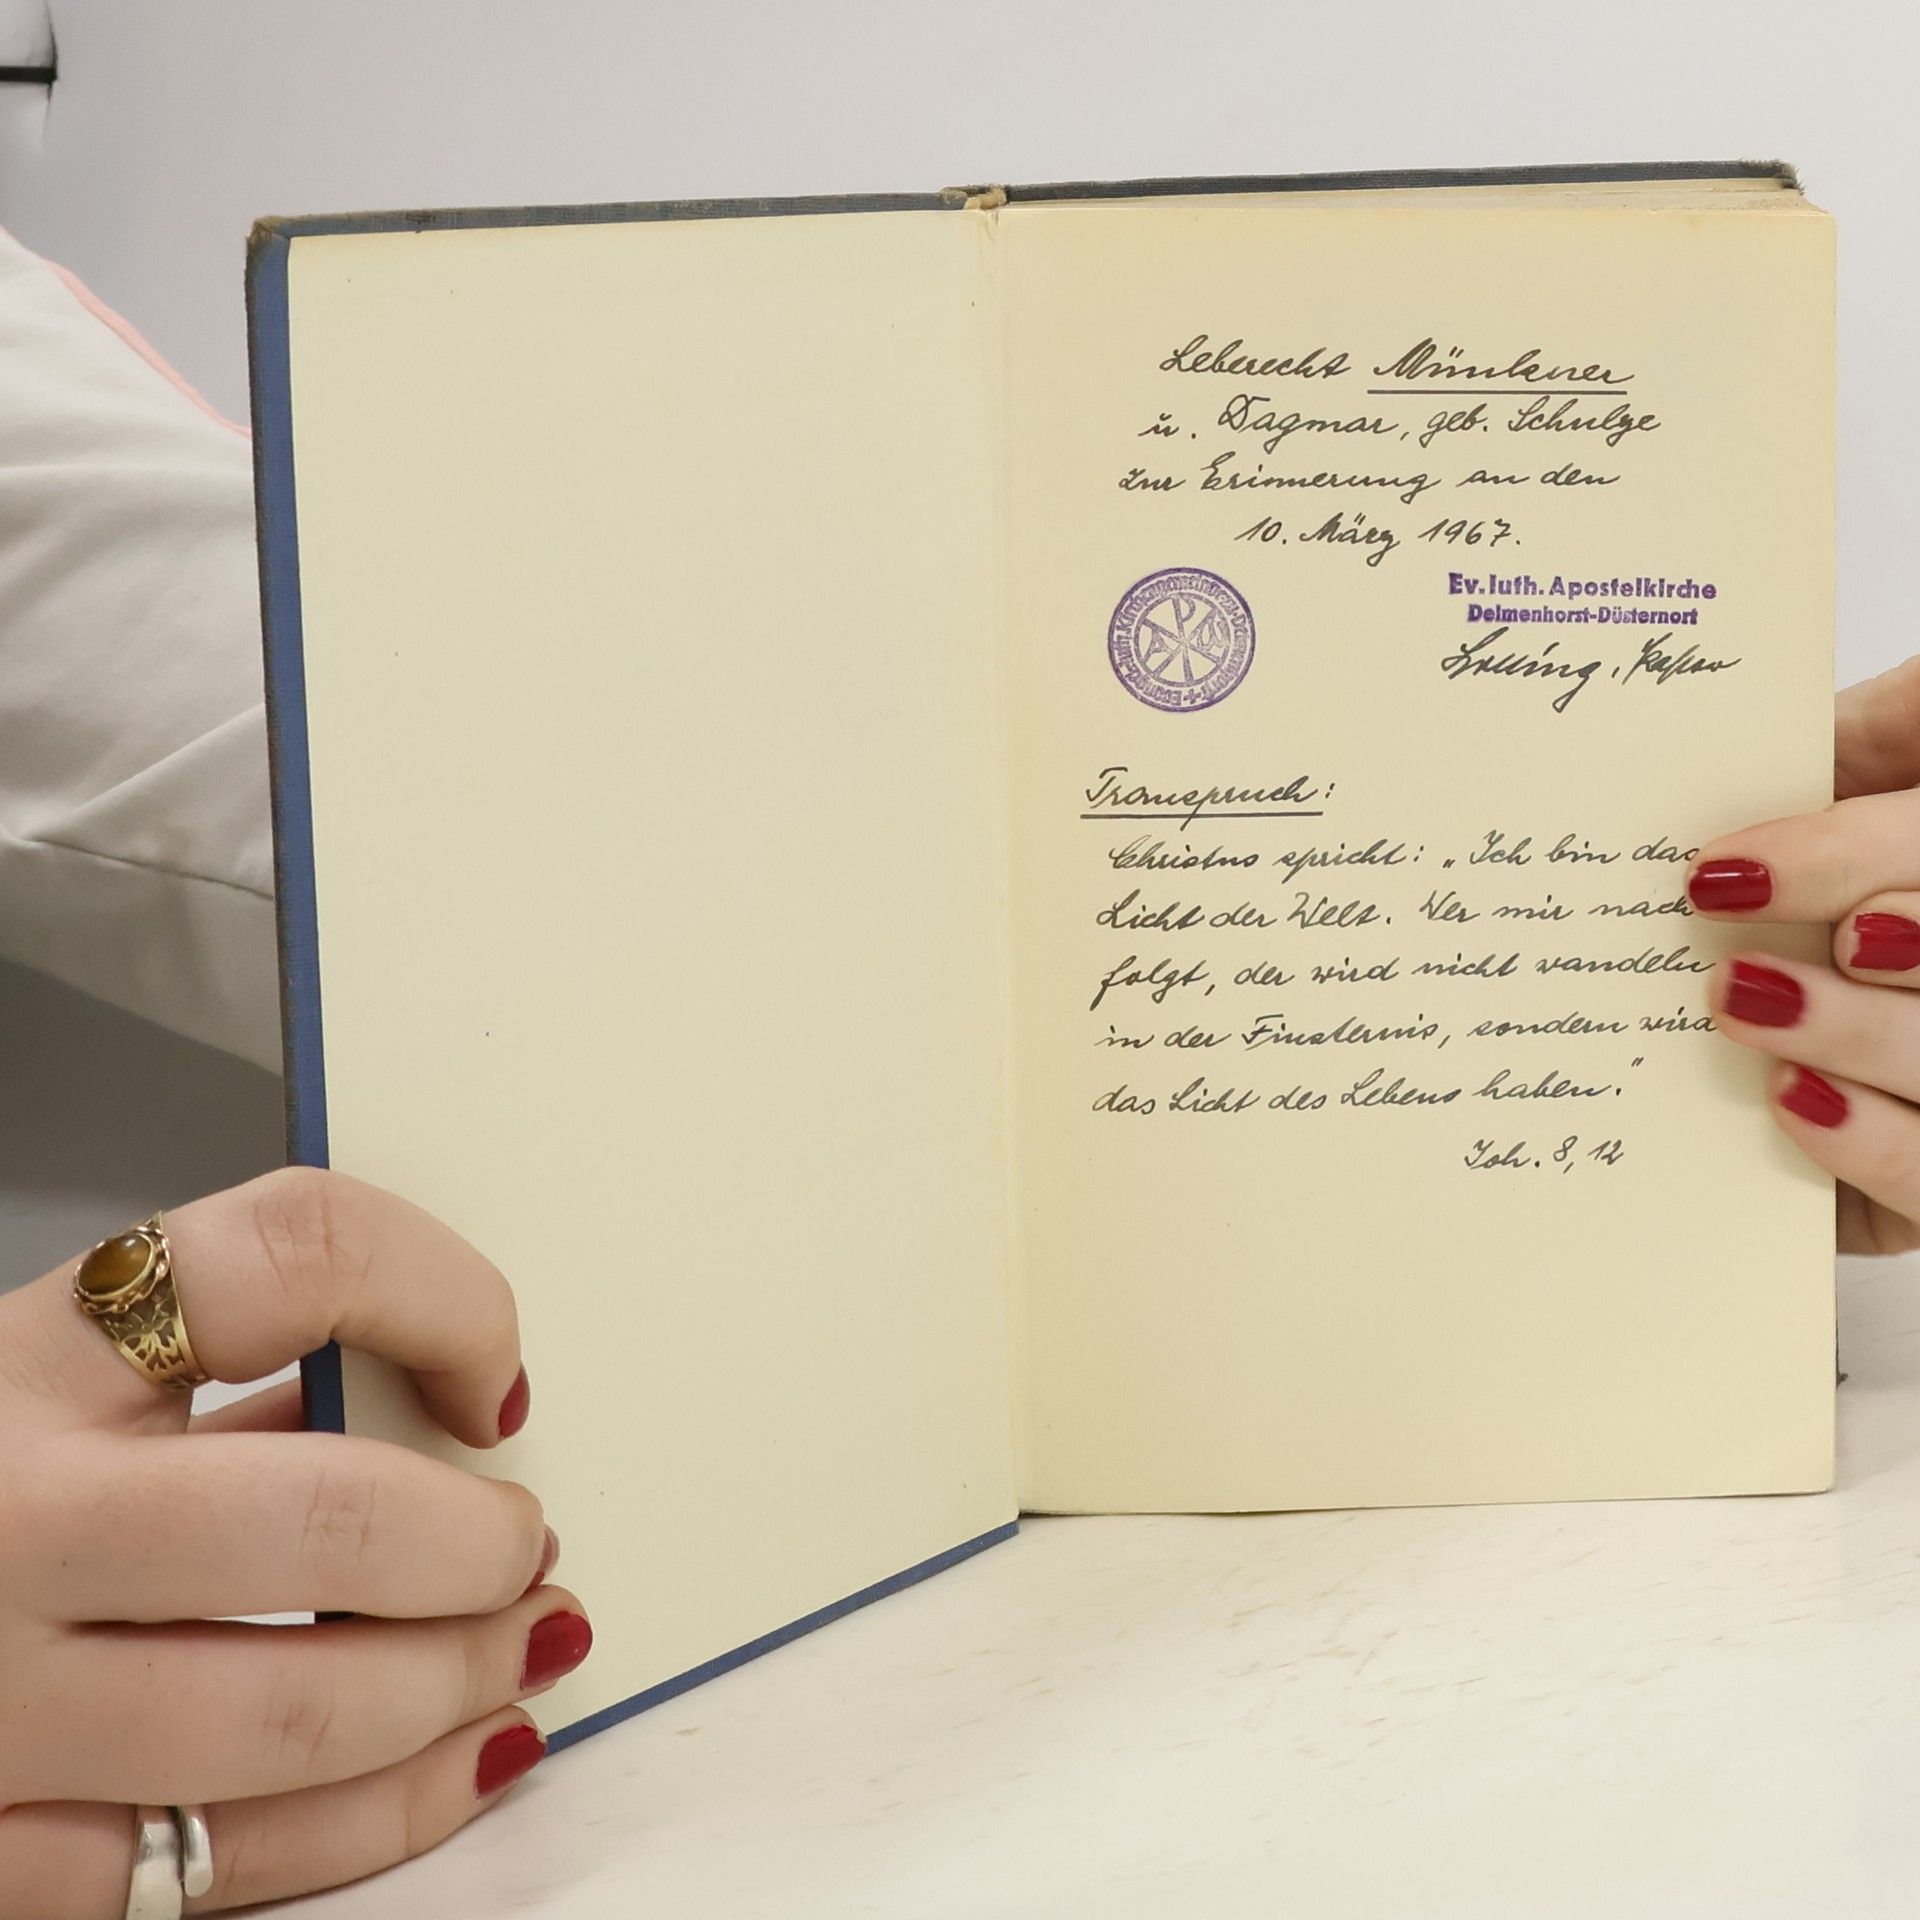 Leberecht Münkner
u. Dagmar, geb. Schulze
zur Erinnerung an den
10. März 1967.
Evangel.-luth. Kirchengemeinde zu Delmenhorst +
Ev. luth. Apostelkirche
Delmenhorst-Düsternort
Pastor
Trauspruch:
Christus spricht: „Ich bin das
Licht der Welt. Wer mir nach
folgt, der wird nicht wandeln
in der Finsternis, sondern wird
das Licht des Lebens haben.“
Joh. 8, 12